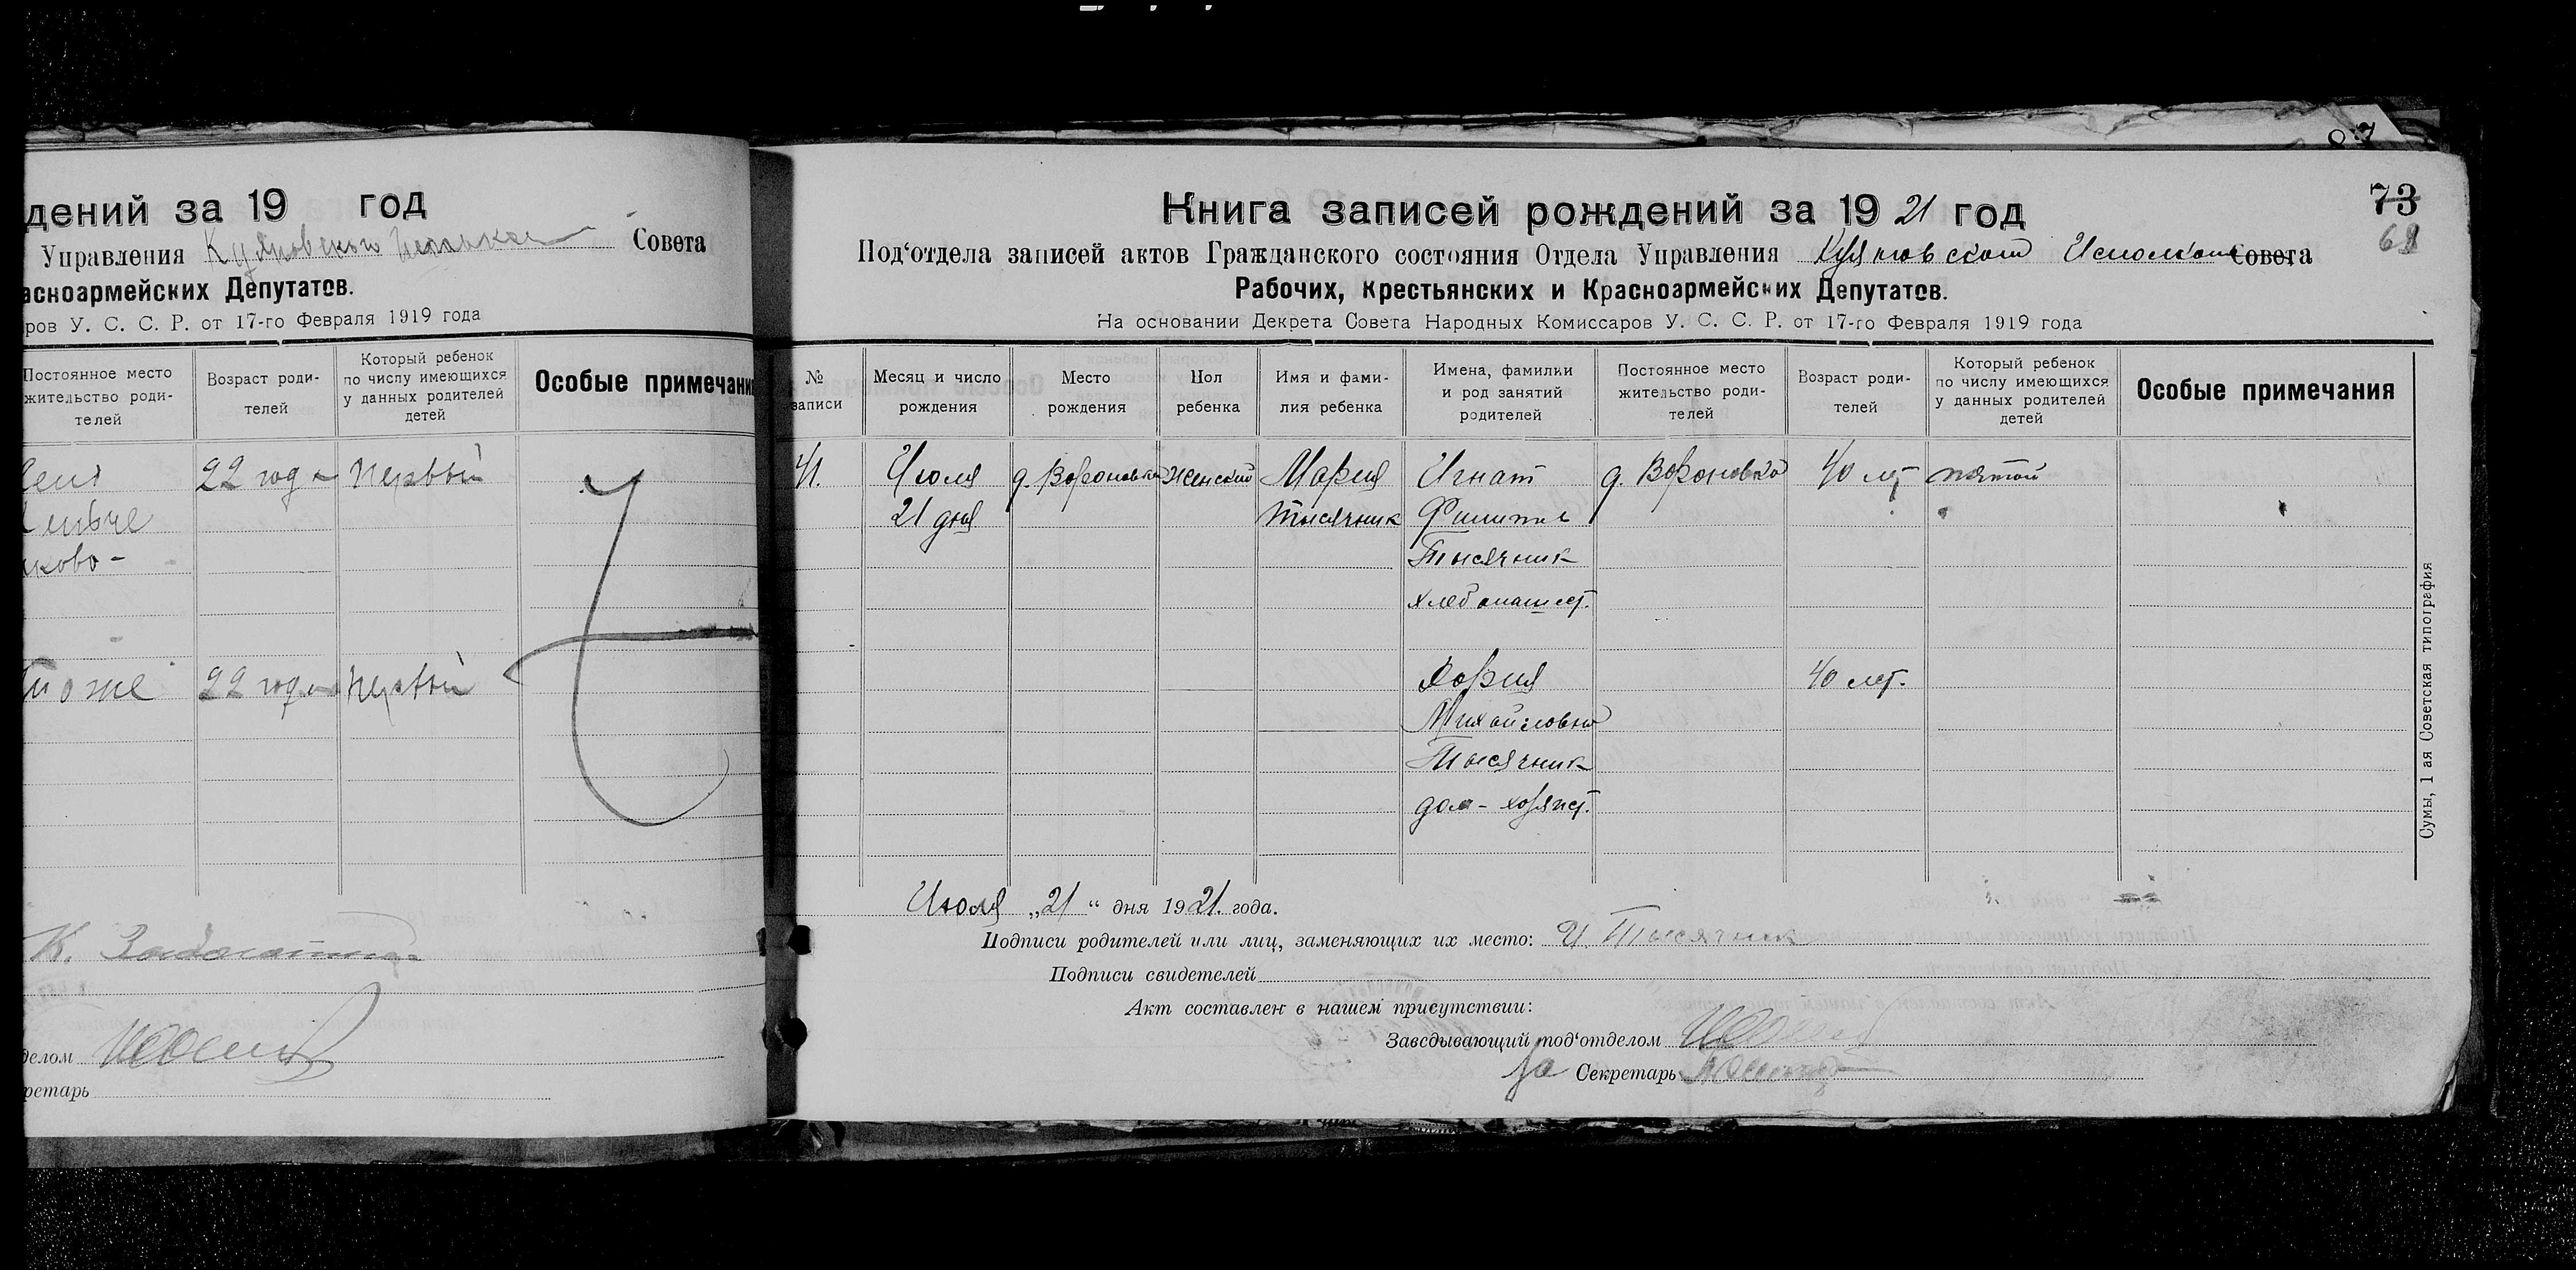 дений за 19 год
Управления Совета
асноармейских Депутатов.
ров У. С. С. Р. от 17-го Февраля 1919 года
Постоянное место жительство роди- телей
Возраст роди- телей
Который ребенок по числу имеющихся у данных родителей детей
Особые примечани
22 год первый
ково-
тоже 22 год первый
К.
делом
ретарь
87
73
68
Книга записей рождений за 19 21 год
Под‘отдела записей актов Гражданского состояния Отдела Управления Исполком Совета
Рабочих, Крестьянских и Красноармейских Депутатов.
На основании Декрета Совета Народных Комиссаров У. С. С. Р. от 17-го Февраля 1919 года
№ записи
Месяц и число рождения
Место рождения
Пол ребенка
Имя и фами- лия ребенка
Имена, фамилии и род занятий родителей
Постоянное место жительство роди- телей
Возраст роди- телей
Который ребенок по числу имеющихся у данных родителей детей
Особые примечания
41. Июля д. Вороновка Женский Мария Игнат д. Вороновка 40 лет пятой
21 дня Тысячник Филипов
Тысячник
хлебопашест.
София 40 лет.
Михайловна
Тысячник
дом-хозяйст.
Июля „21“ дня 1921. года.
Подписи родителей или лиц, заменяющих их место: И Тысячник
Подписи свидетелей
Акт составлен в нашем присутствии:
Заведывающий под‘отделом
За Секретарь
Сумы, 1 ая Советская типография